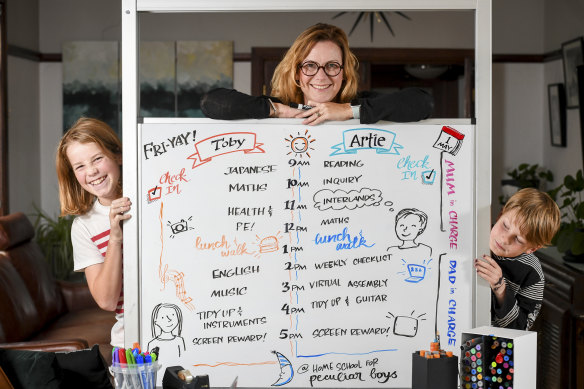 FRI-YAY!
Toby
Artie
1 MAY
CHECK IN
JAPANESE
MATHS
HEALTH & PE!
LUNCH & WALK
ENGLISH
MUSIC
TIDY UP & INSTRUMENTS
SCREEN REWARD!
9AM
10AM
11AM
12PM
1PM
2PM
3PM
4PM
5PM
READING
INQUIRY
INTERLANDS
MATHS
LUNCH & WALK
WEEKLY CHECKLIST
VIRTUAL ASSEMBLY
TIDY UP & GUITAR
SCREEN REWARD!
CHECK IN
MUM IN CHARGE
DAD IN CHARGE
@ HOME SCHOOL FOR
peculiar boys